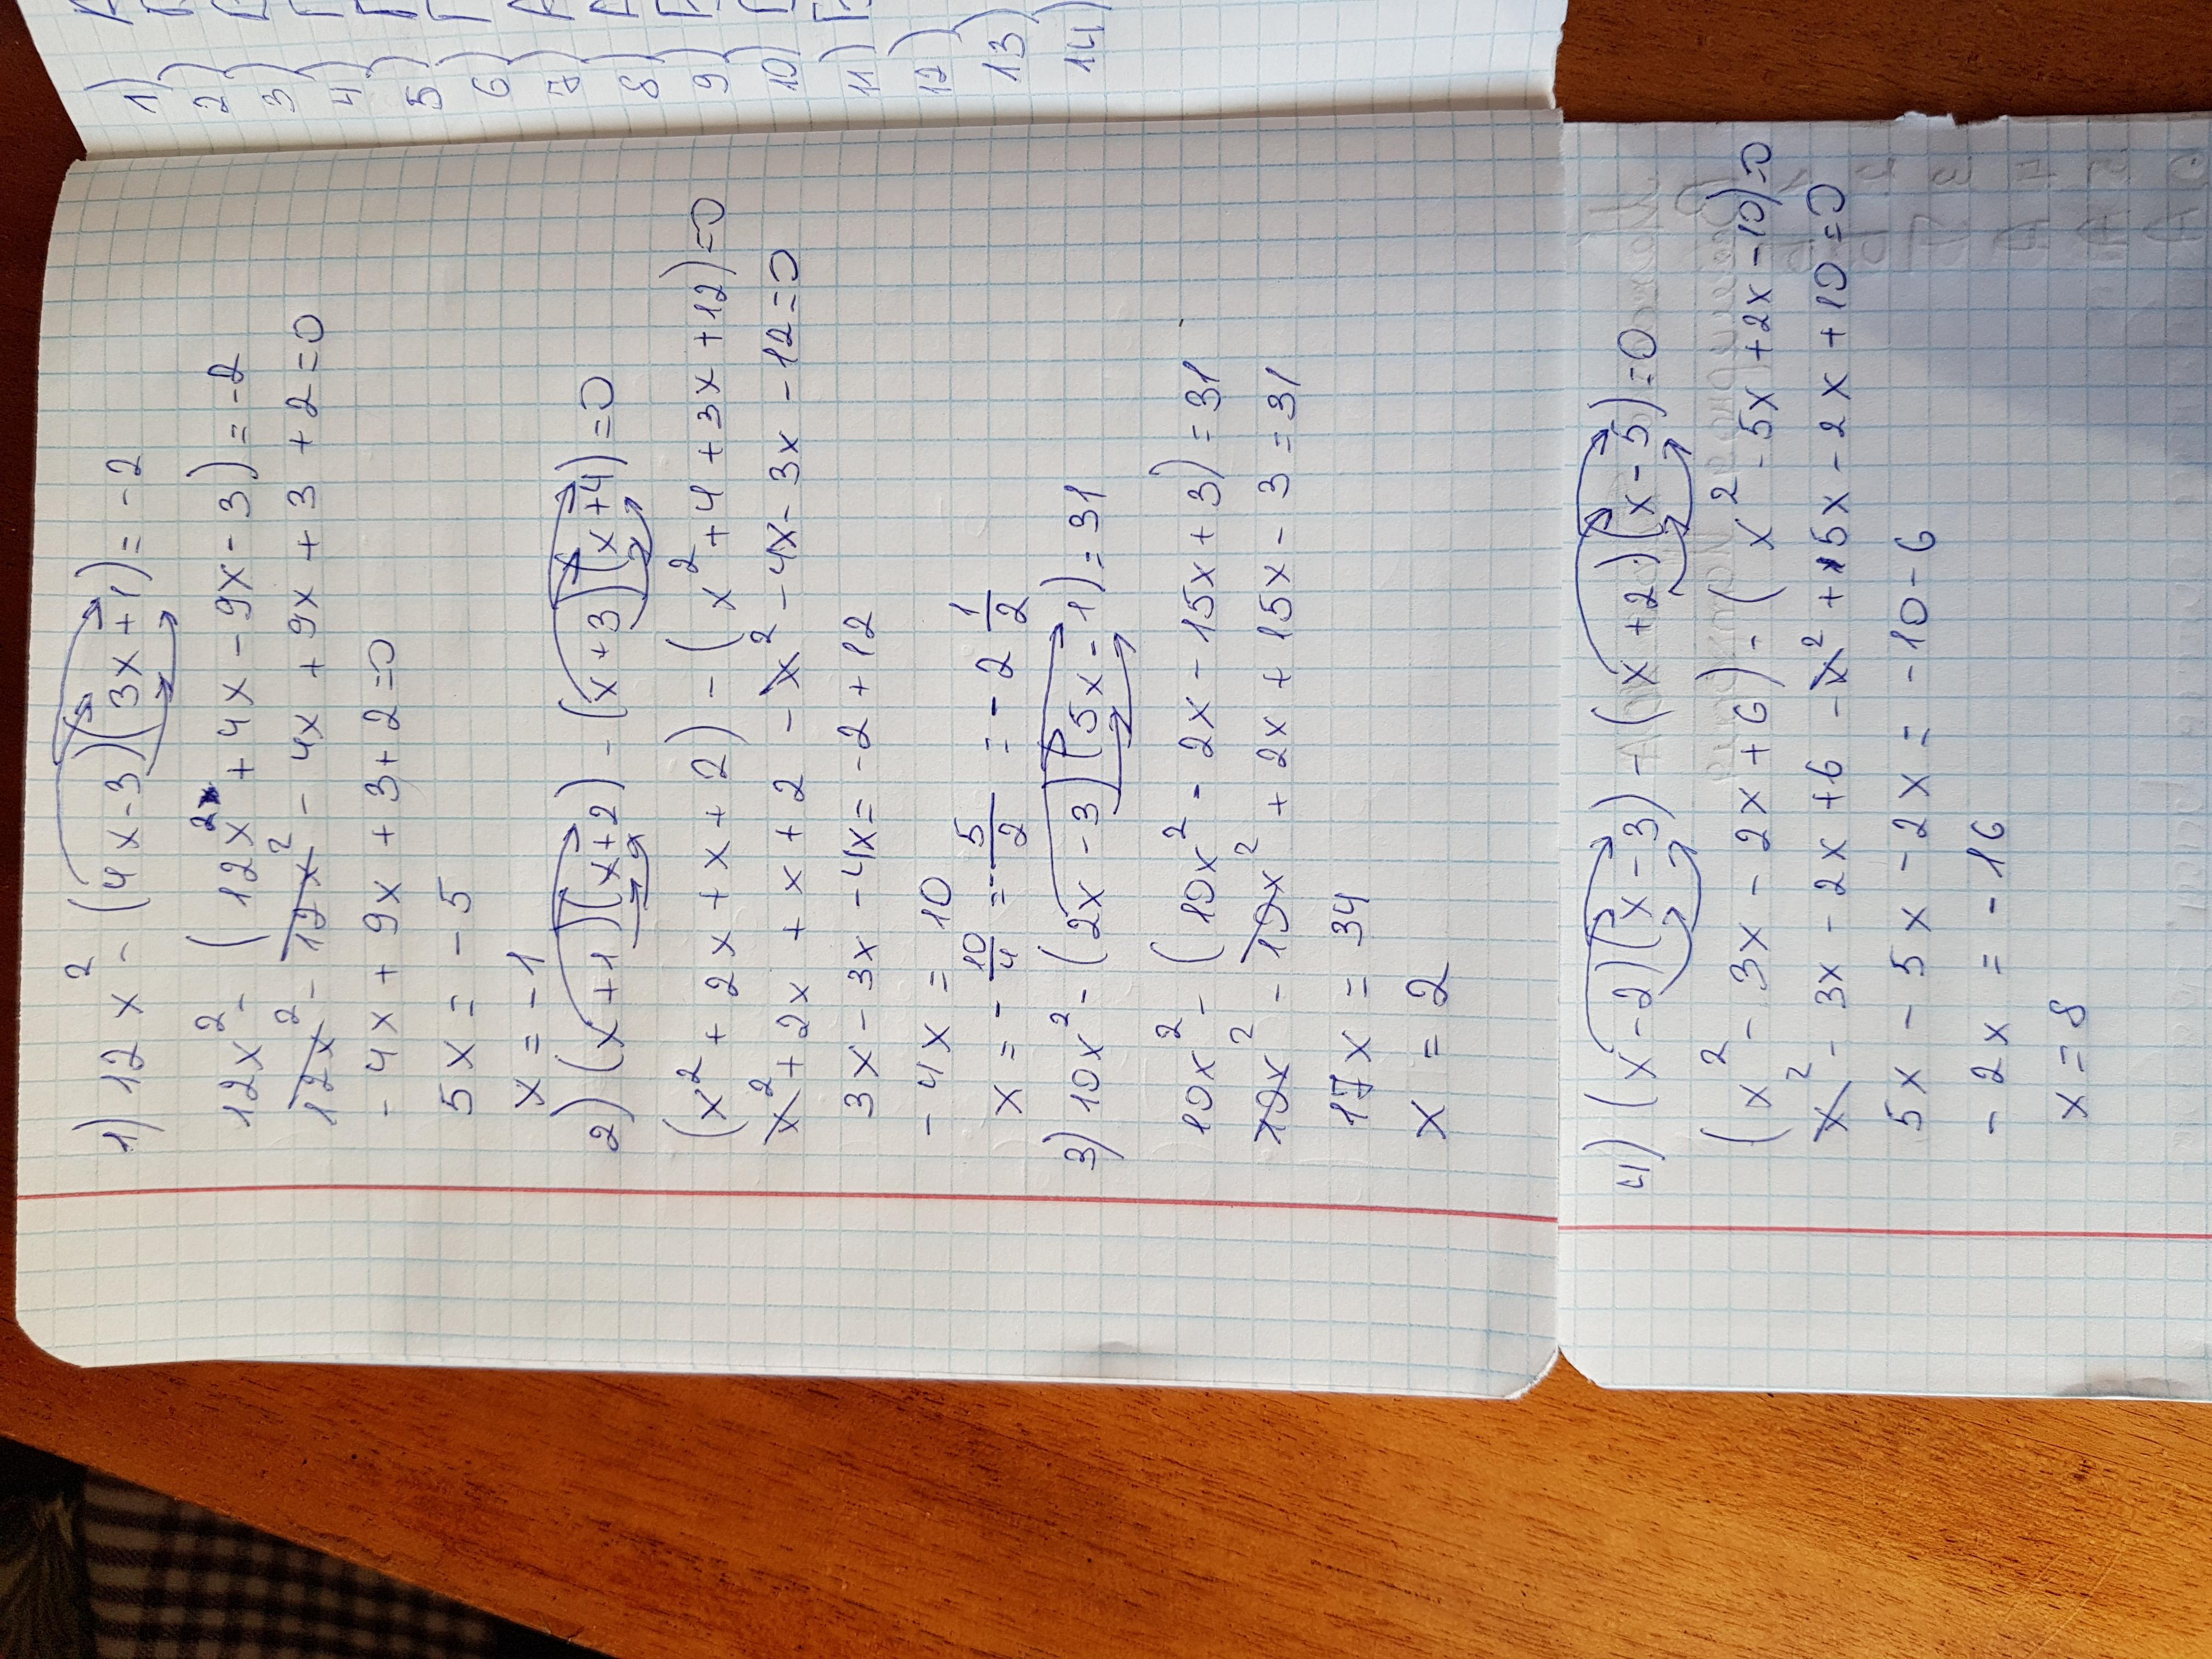 1)
2)
3)
4)
5)
6)
7)
8)
9)
10)
11)
12)
13)
14)
1) 12x² - (4x-3)(3x+1) = -2
12x² - (12x² + 4x - 9x - 3) = -2
12x² - 12x² - 4x + 9x + 3 + 2 = 0
- 4x + 9x + 3 + 2 = 0
5x = -5
x = -1
2) (x+1)(x+2) - (x+3)(x+4) = 0
(x² + 2x + x + 2) - (x² + 4 + 3x + 12) = 0
x² + 2x + x + 2 - x² - 4x - 3x - 12 = 0
3x - 3x - 4x = -2 + 12
- 4x = 10
x = - 10/4 = - 5/2 = - 2 1/2
3) 10x² - (2x - 3)(5x - 1) = 31
10x² - (10x² - 2x - 15x + 3) = 31
10x² - 10x² + 2x + 15x - 3 = 31
17x = 34
x = 2
4) (x-2)(x-3) - (x+2)(x-5) = 0
(x² - 3x - 2x + 6) - (x² - 5x + 2x - 10) = 0
x² - 3x - 2x + 6 - x² + 5x - 2x + 10 = 0
5x - 5x - 2x = -10 - 6
- 2x = -16
x = 8